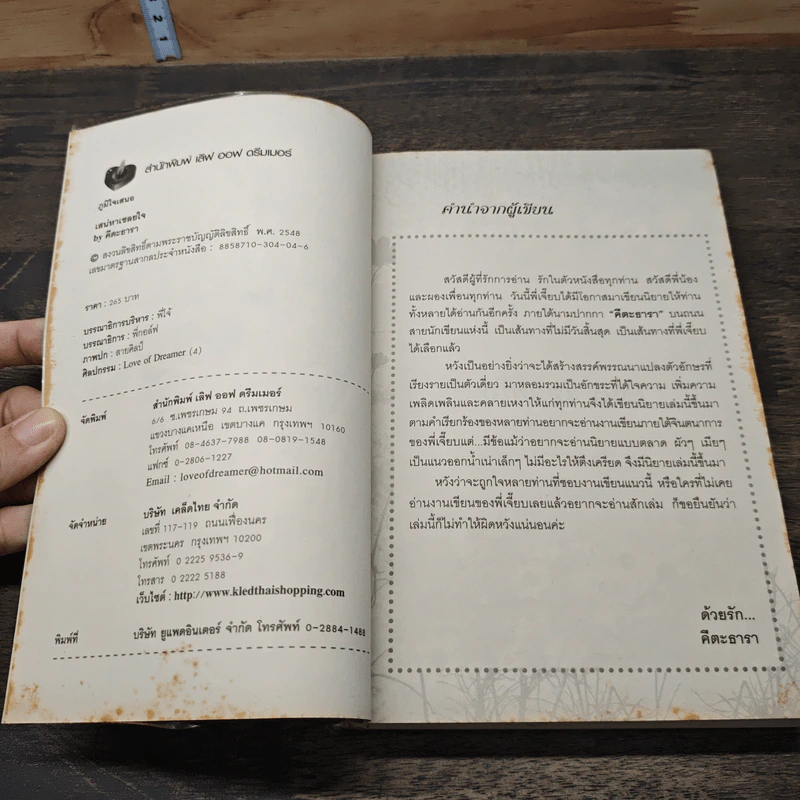 2
1
สำนักพิมพ์ เลิฟ ออฟ ดรีมเมอร์
ภูมิใจเสนอ
เสน่หาเชลยใจ
by คีตะธารา
© สงวนลิขสิทธิ์ตามพระราชบัญญัติลิขสิทธิ์ พ.ศ. 2548
เลขมาตรฐานสากลประจำหนังสือ : 8858710-304-04-6
ราคา : 265 บาท
บรรณาธิการบริหาร : พี่ไจ้
บรรณาธิการ : พี่กอล์ฟ
ภาพปก : สายศิลป์
ศิลปกรรม : Love of Dreamer (4)
จัดพิมพ์
สำนักพิมพ์ เลิฟ ออฟ ดรีมเมอร์
6/6 ซ.เพชรเกษม 94 ถ.เพชรเกษม
แขวงบางแคเหนือ เขตบางแค กรุงเทพฯ 10160
โทรศัพท์ 08-4637-7988 08-0819-1548
แฟกซ์ 0-2806-1227
Email : loveofdreamer@hotmail.com
จัดจำหน่าย
บริษัท เคล็ดไทย จำกัด
เลขที่ 117-119 ถนนเฟื่องนคร
เขตพระนคร กรุงเทพฯ 10200
โทรศัพท์ 0 2225 9536-9
โทรสาร 0 2222 5188
เว็บไซต์ : http://www.kledthaishopping.com
พิมพ์ที่ บริษัท ยูแพดอินเตอร์ จำกัด โทรศัพท์ 0-2884-1488
คำนำจากผู้เขียน
สวัสดีผู้ที่รักการอ่าน รักในตัวหนังสือทุกท่าน สวัสดีพี่น้อง
และผองเพื่อนทุกท่าน วันนี้พี่เจี๊ยบได้มีโอกาสมาเขียนนิยายให้ท่าน
ทั้งหลายได้อ่านกันอีกครั้ง ภายใต้นามปากกา "คีตะธารา" บนถนน
สายนักเขียนแห่งนี้ เป็นเส้นทางที่ไม่มีวันสิ้นสุด เป็นเส้นทางที่พี่เจี๊ยบ
ได้เลือกแล้ว
หวังเป็นอย่างยิ่งว่าจะได้สร้างสรรค์พรรณนาแปลงตัวอักษรที่
เรียงรายเป็นตัวเดี่ยว มาหลอมรวมเป็นอักขระที่ได้ใจความ เพิ่มความ
เพลิดเพลินและคลายเหงาให้แก่ทุกท่านจึงได้เขียนนิยายเล่มนี้ขึ้นมา
ตามคำเรียกร้องของหลายท่านอยากจะอ่านงานเขียนภายใต้จินตนาการ
ของพี่เจี๊ยบแต่...มีข้อแม้ว่าอยากจะอ่านนิยายแบบตลาด ผัวๆ เมียๆ
เป็นแนวออกน้ำเน่าเล็กๆ ไม่มีอะไรให้ตึงเครียด จึงมีนิยายเล่มนี้ขึ้นมา
หวังว่าจะถูกใจหลายท่านที่ชอบงานเขียนแนวนี้ หรือใครที่ไม่เคย
อ่านงานเขียนของพี่เจี๊ยบเลยแล้วอยากจะอ่านสักเล่ม ก็ขอยืนยันว่า
เล่มนี้ก็ไม่ทำให้ผิดหวังแน่นอนค่ะ
ด้วยรัก...
คีตะธารา